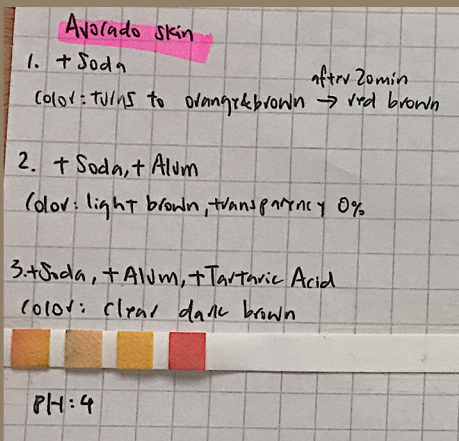 Avocado skin
1. + Soda
after 20min
Color: turns to orange&brown → red brown
2. + Soda, + Alum
Color: light brown, transparency 0%
3. +Soda, +Alum, +Tartaric Acid
Color: clear dark brown
PH: 4